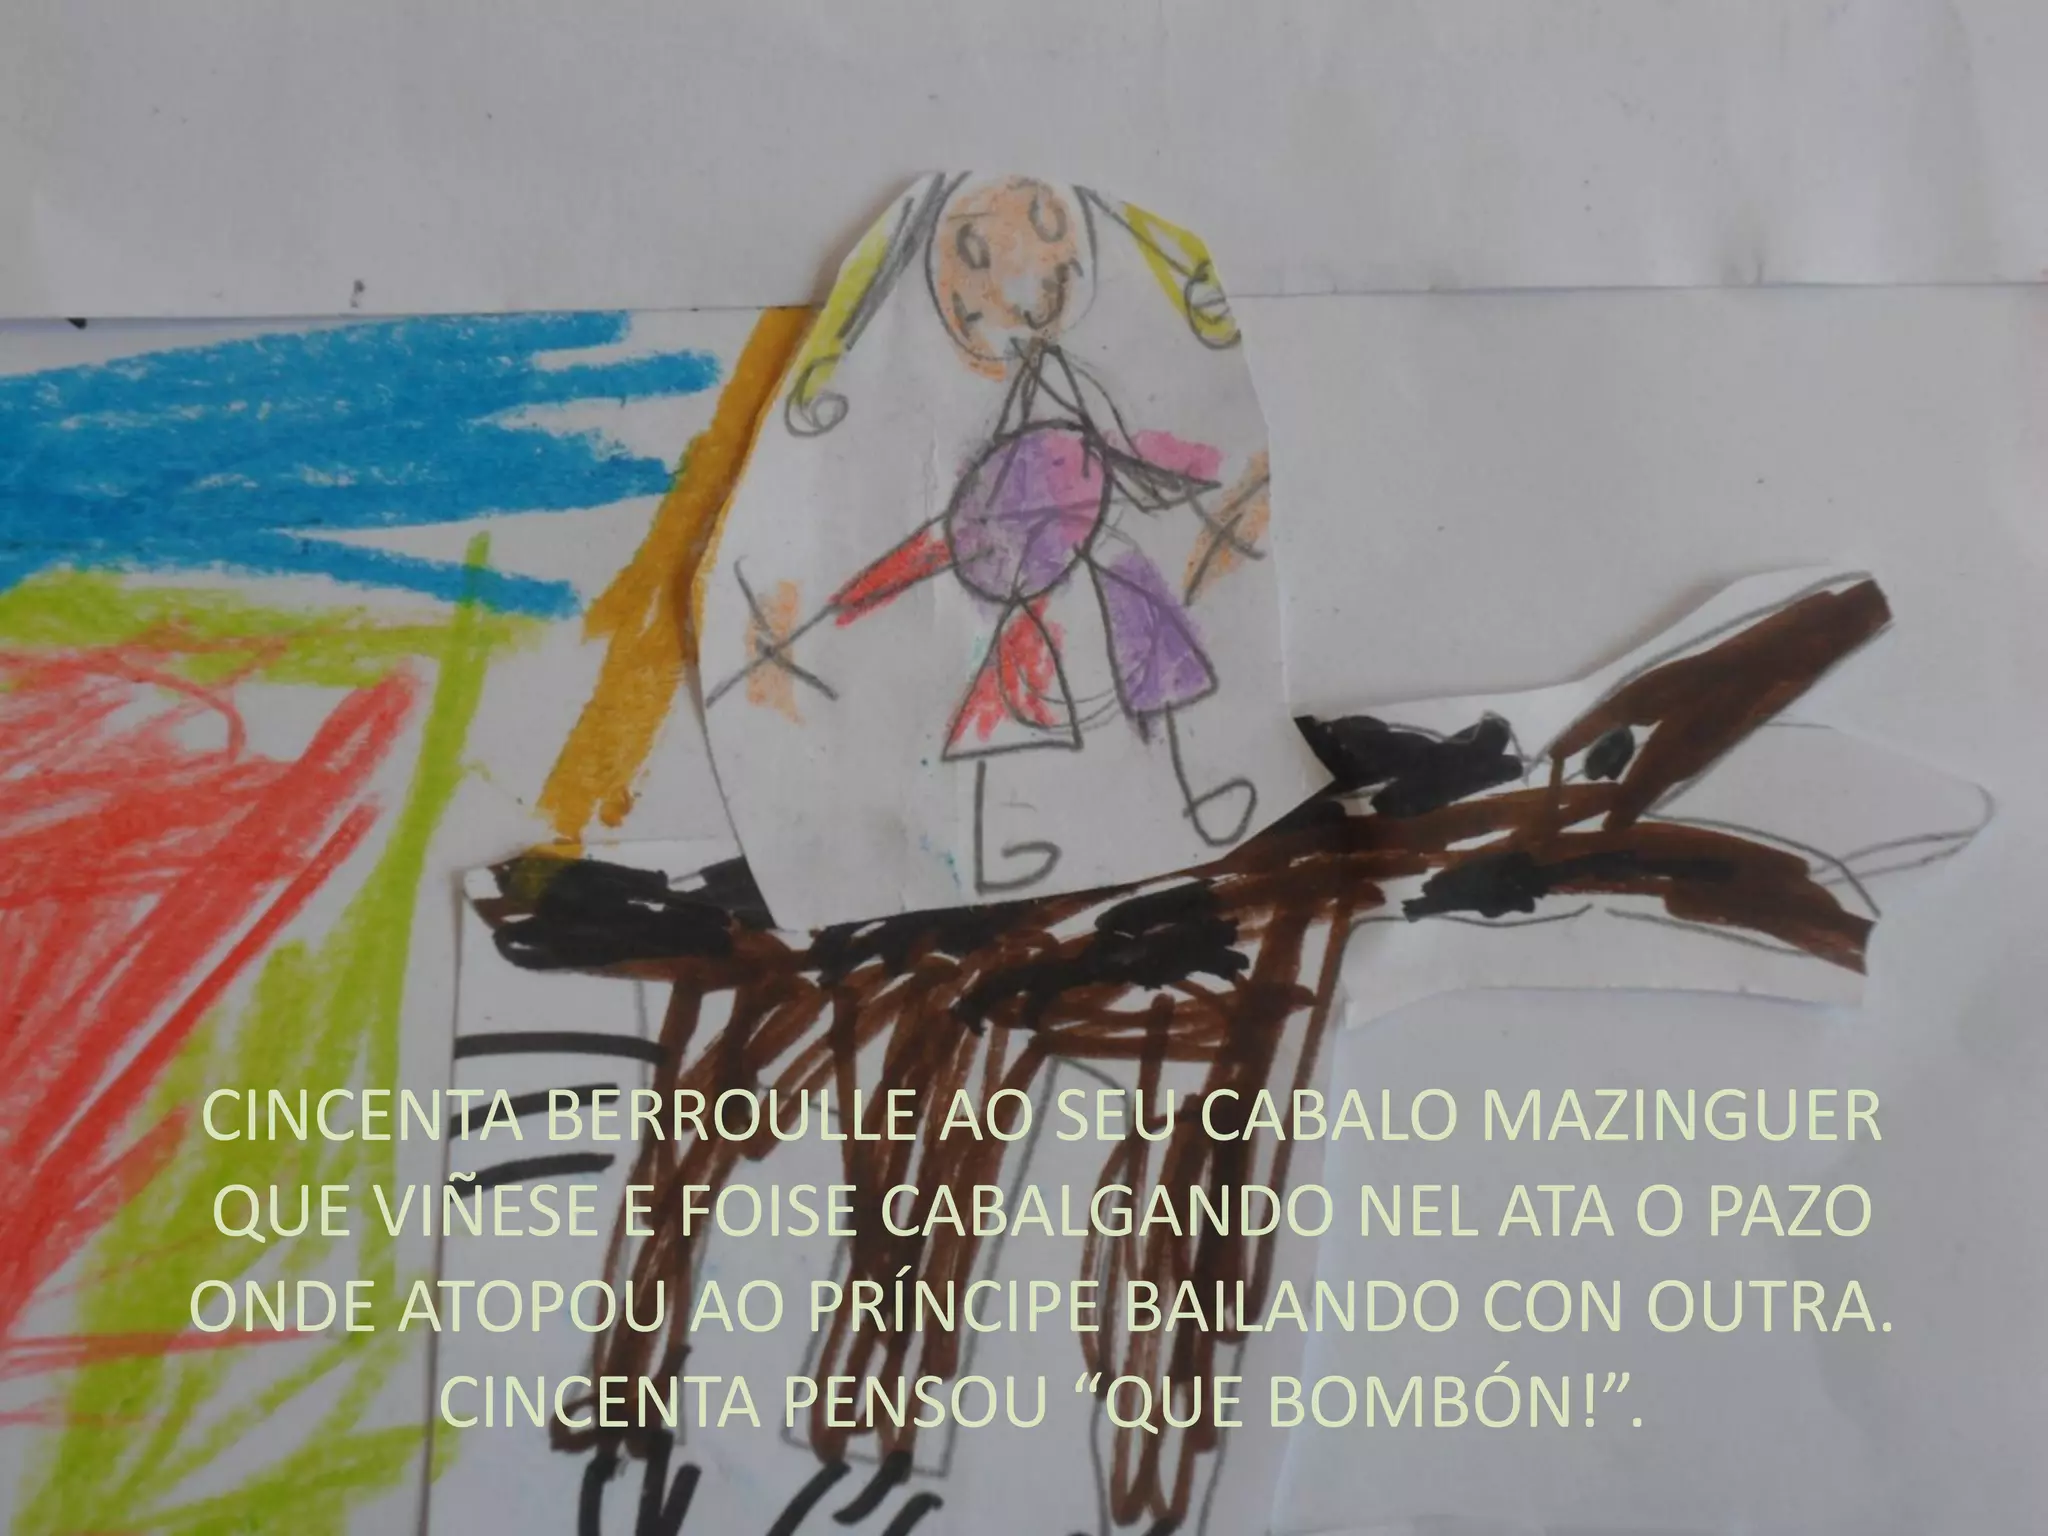 CINCENTA BERROULLE AO SEU CABALO MAZINGUER
QUE VIÑESE E FOISE CABALGANDO NEL ATA O PAZO
ONDE ATOPOU AO PRÍNCIPE BAILANDO CON OUTRA.
CINCENTA PENSOU “QUE BOMBÓN!”.